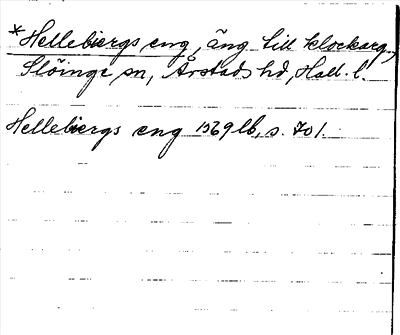 *Hellebiergs eng, äng till klockarg.,
Slöinge sn, Årstads hd, Hall. l.
Hellebiergs eng 1569 lb, s. 701.